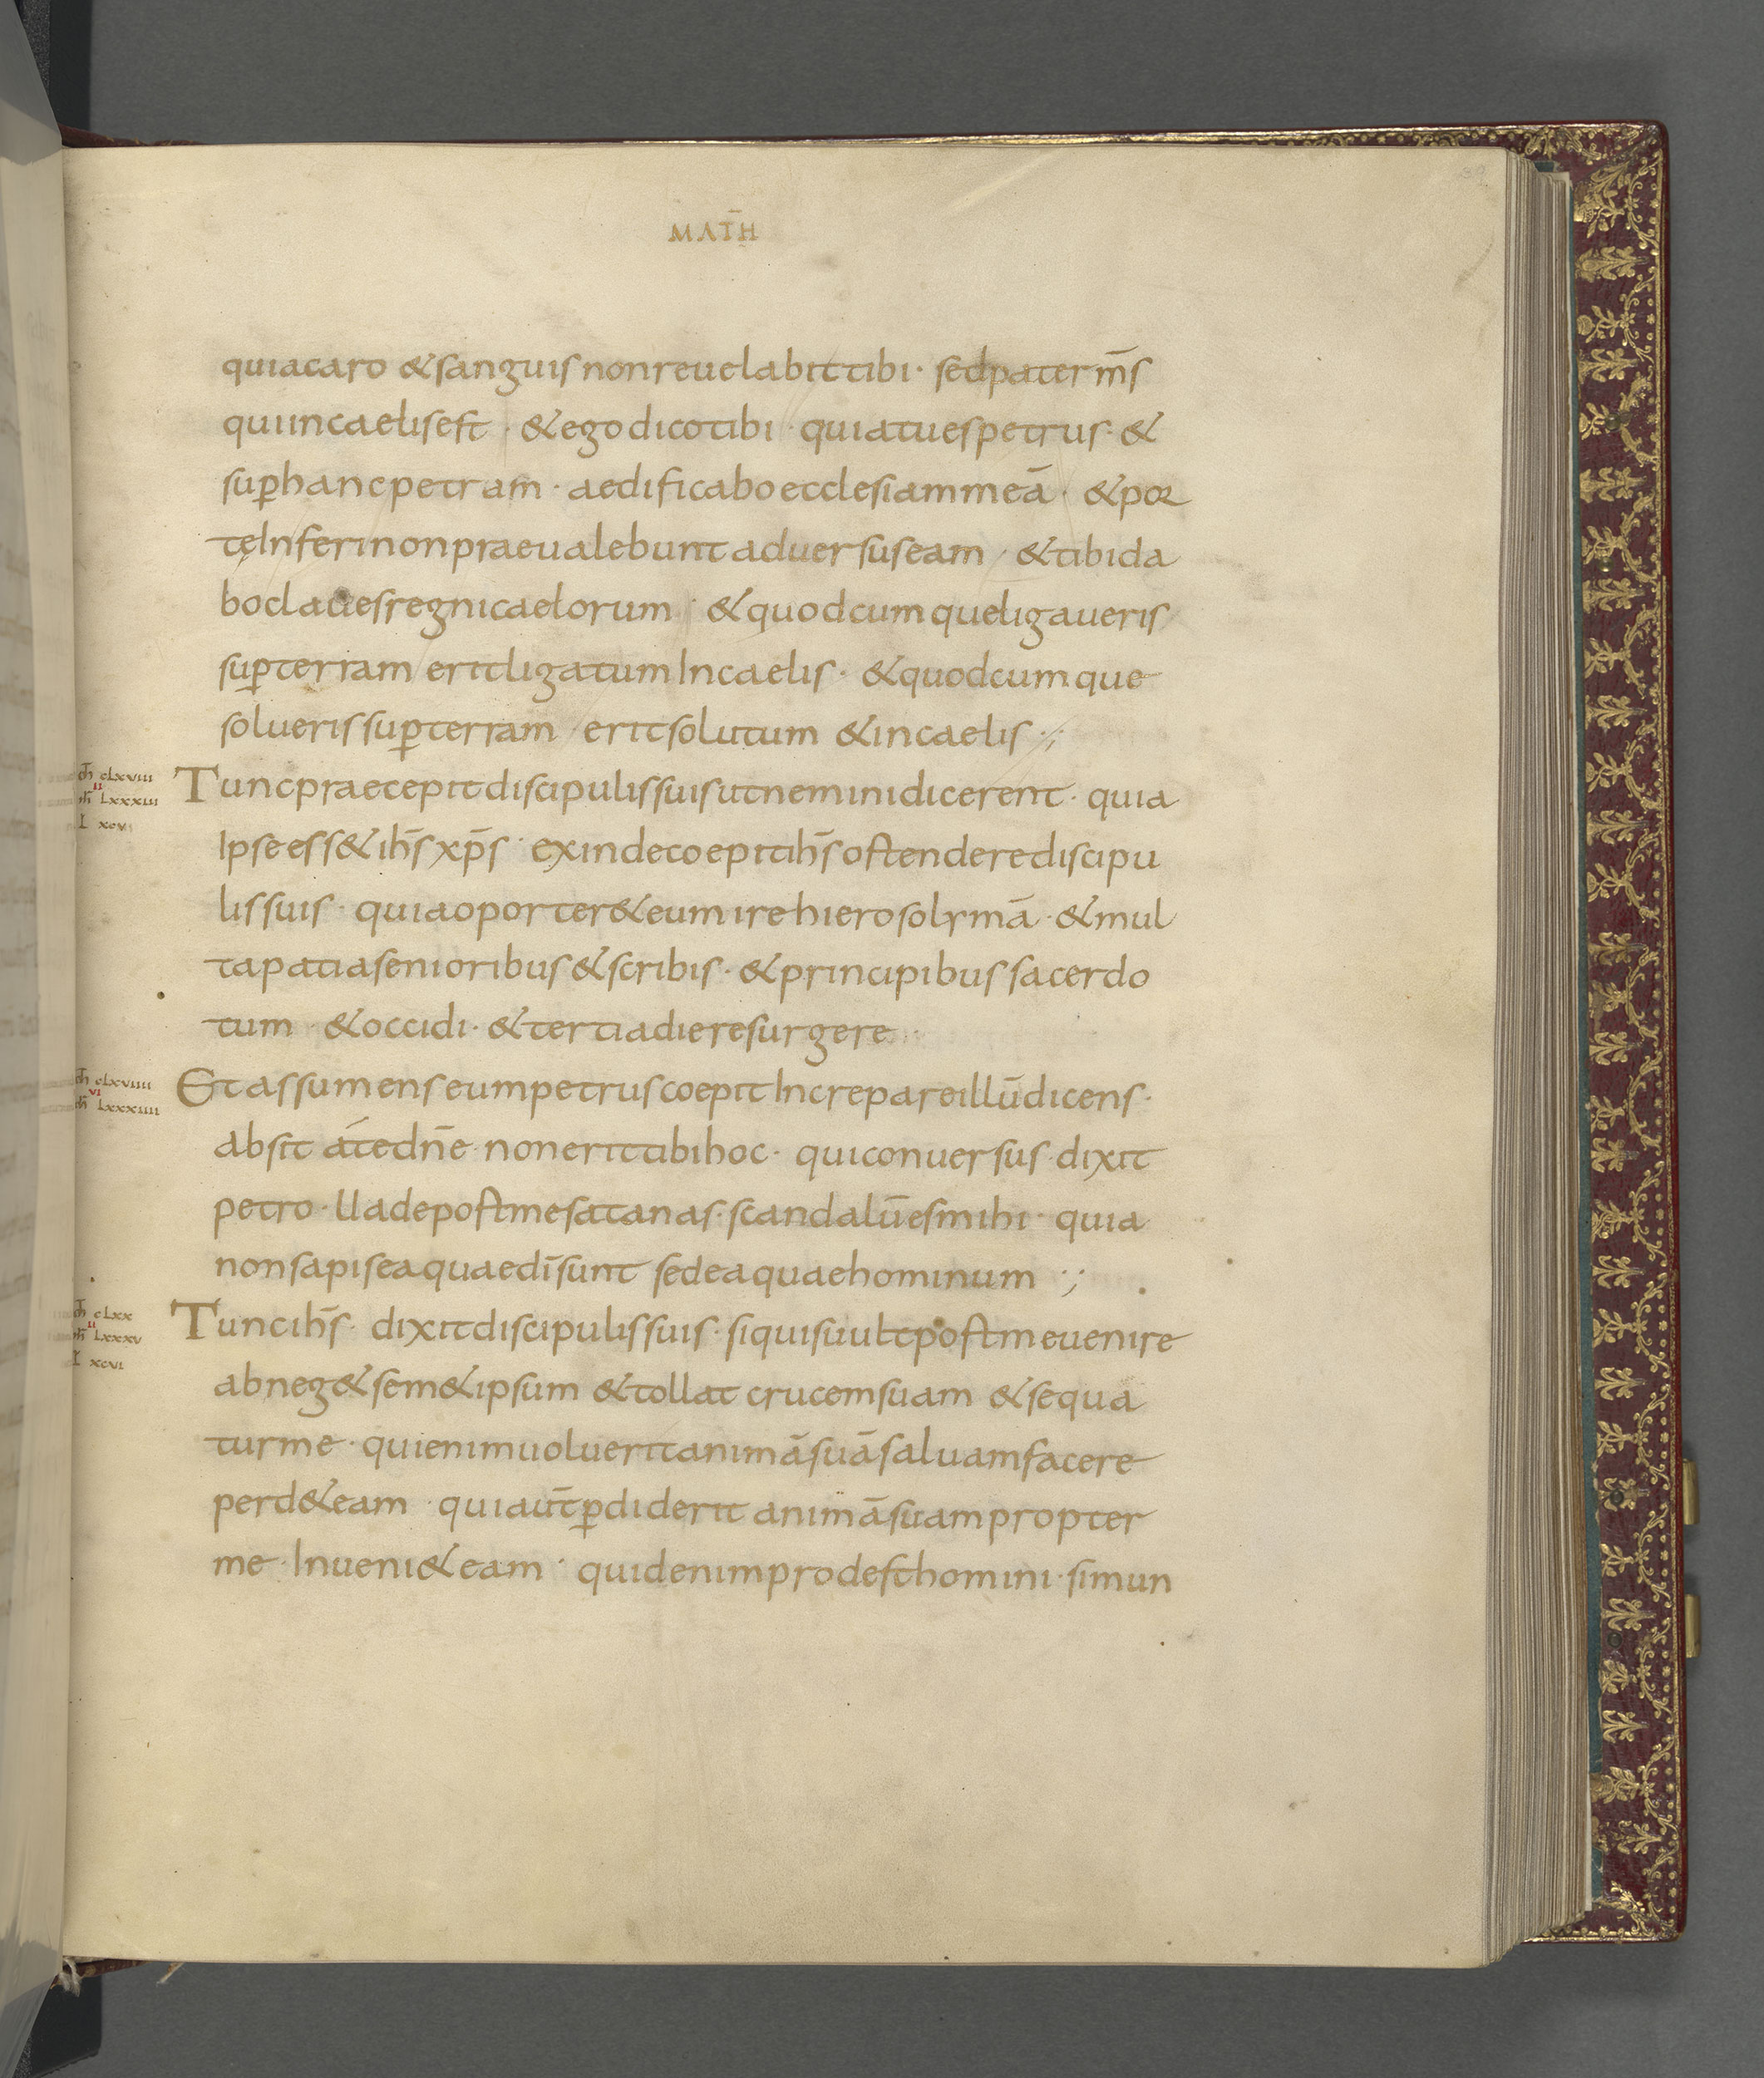 MAT̄H
quiacaro &sanguisnonreuelabittibi· sedpaterm̄s
quiincaelisest · &egodicotibi · quiatuespetrus· &
sup̱hancpetram · aedificaboecclesiammeā· &por
teInferinonpraeualebuntaduersuseam / &tibida
boclauesregnicaelorum · &quodcumqueligaueris
sup̱terram eritligatumIncaelis· &quodcumque
soluerissup̱terram eritsolutum &incaelis ·,·
ch̄ clxviii
Tuncpraecepitdiscipulissuisutneminidicerent· quia
ii
lxxxiii
xcv
Ipseess&ih̄s xp̄s · exindecoepitih̄sostenderediscipu
lissuis · quiaoporter&eumirehierosolymā·&mul
tapatiasenioribus&scribis· &principibussacerdo
tum · &occidi· &tertiadieresurgere
ch̄ clxviiii
Etassumenseumpetruscoepit Increpareillūdicens·
vi
lxxxiiii
absit átedn̄e nonerittibihoc· quiconuersus·dixit
petro·Uadepostmesatanas·scandalūesmihi · quia
nonsapiseaquaedīsunt sedeaquaehominum ·,·
ch̄ clxx
Tuncih̄s· dixitdiscipulissuis· siquisuultpostmeuenire
ii
lxxxv
xcvi
abneg&sem&ipsum &tollat crucemsuam &sequa
turme · quienimuolueritanimāsuāsaluamfacere
perd&eam · quiaut̄p̱diderit animāsuampropter
me·Inueni&eam · quidenimprodesthomini·simun